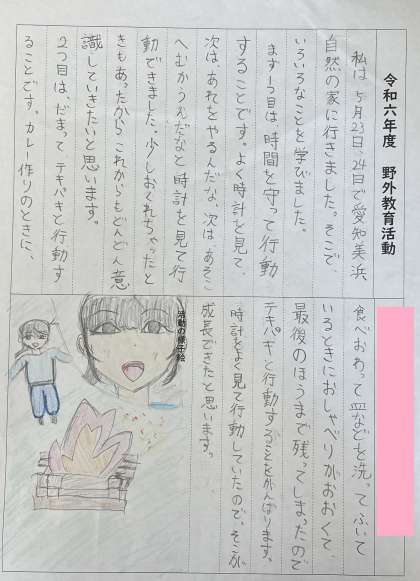 令和六年度 野外教育活動
私は、5月23日、24日で愛知美浜
自然の家に行きました。そこで、
いろいろなことを学びました。
まず1つ目は、時間を守って行動
することです。よく時計を見て、
次は、あれをやるんだな、次は、あそこ
へむかうんだなと時計を見て行
動できました。少しおくれちゃったと
きもあったから、これからもどんどん意
識していきたいと思います。
2つ目は、だまってテキパキと行動す
ることです。カレー作りのときに、
食べおわって皿などを洗ってふいて
いるときにおしゃべりがおおくて、
最後のほうまで残ってしまったので
テキパキと行動することをがんばります。
時計をよく見て行動していたので、そこが
成長できたと思います。
活動の様子絵